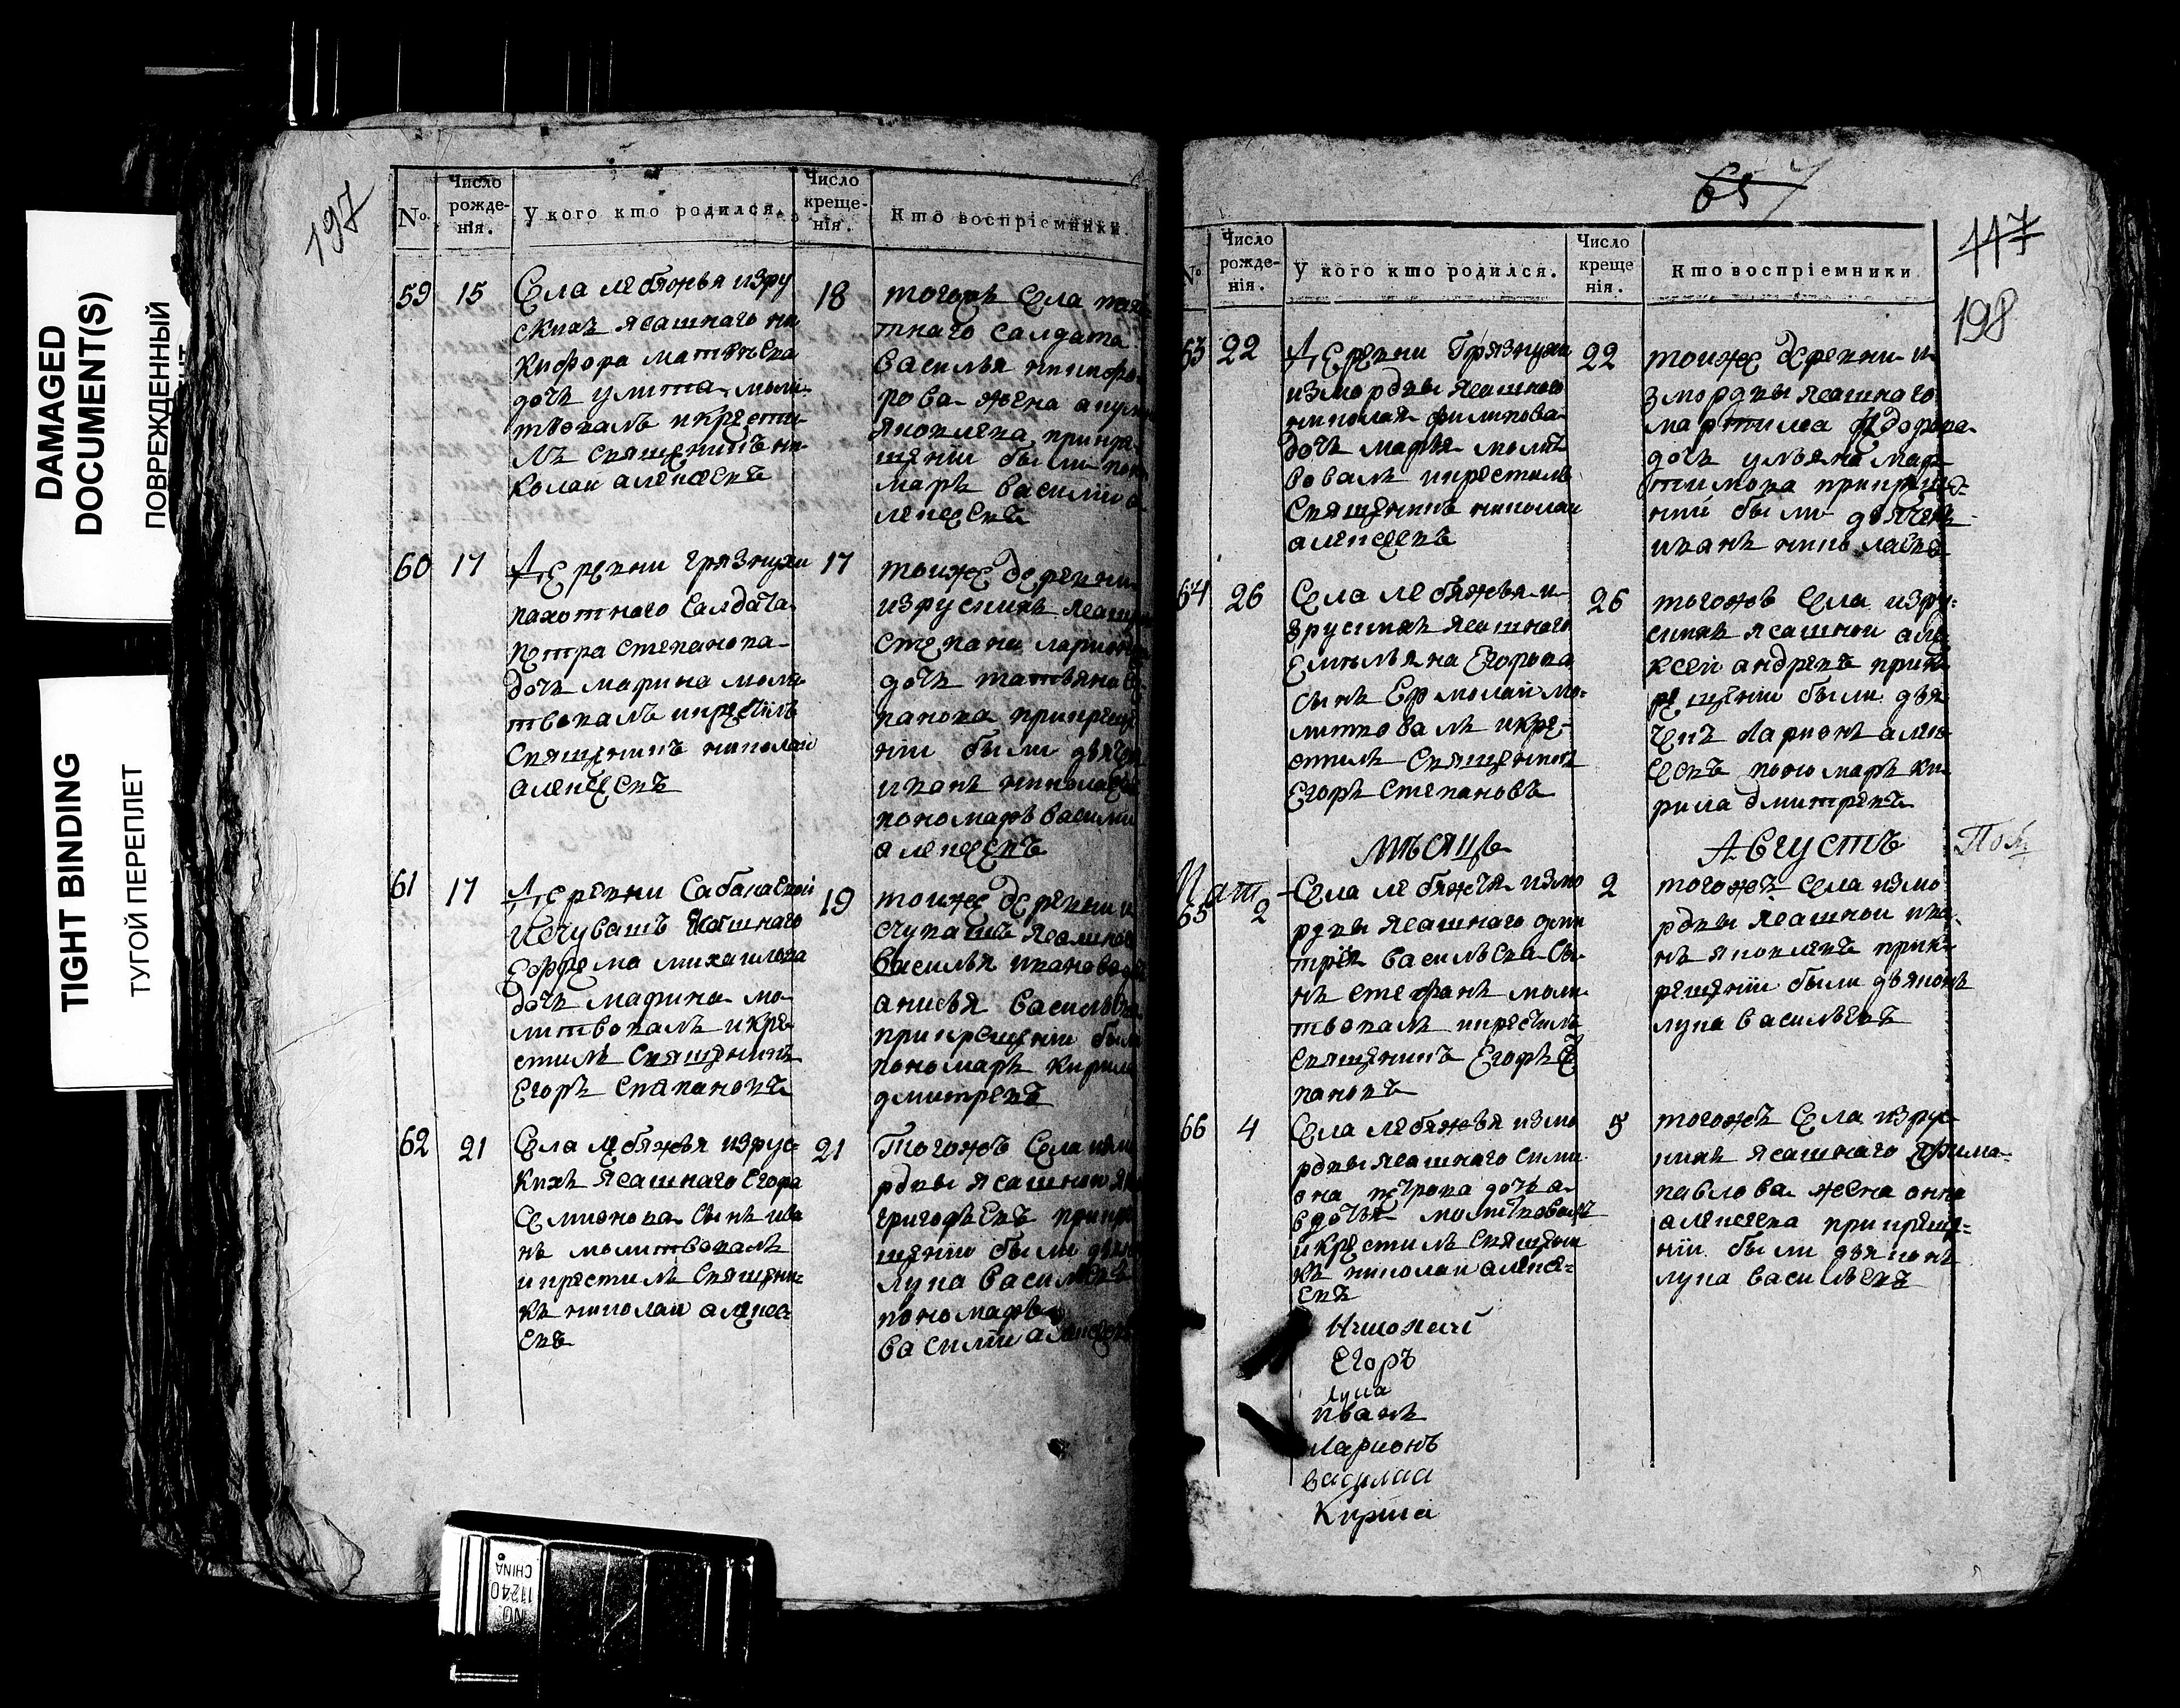 DAMAGED
DOCUMENT(S)
ПОВРЕЖДЕННЫЙ
TIGHT BINDING
ТУГОЙ ПЕРЕПЛЕТ
197
№.
Число рожде-нія.
У кого кто родился.
Число креще-нія.
Кто воспріемники.
59 15
Села лебяжья изру
скихъ ясашнаго ни
кифора матвѣева
дочь улита моли
твовалъ икрести
лъ священникъ ни
колай алексеевъ
18
тогожъ села
тнаго салдата
василья никифо
рова жена
яковлева прикре
щении были поно
марь василий а
лексеевъ
60 17
Деревни грязнухи
пахотнаго салдата
петра степанова
дочь марина моли
твовалъ икрестилъ
священникъ николай
алексеевъ
17
тоиже деревни
изрускихъ ясашн
степана ларионо
дочь татьяна с
панова прикреще
нии были дьячек
иванъ николаев
пономарь василии
алексеевъ
61 17
Деревни Сабакаевой
ичувашъ ясашнаго
ефрема михаилова
дочь марина мо
литвовалъ икре
стилъ священникъ
Егоръ степановъ
19
тоиже деревни и
счувашъ ясашнов
василья иванова до
анисья васильева
прикрещении были
пономарь кирила
дмитревъ
62 21
Села лебяжья изрус
кихъ ясашнаго Егора
семионова сынъ ива
нъ молитвовалъ
икрестилъ священни
къ николаи алексе
евъ
21
Тогожъ села изм
рдвы ясашнои
григорьевъ прикре
щении были дьякон
лупа васильевъ
пономарь
василии алексеевъ
65
117
198
№.
Число рожде-нія.
У кого кто родился.
Число креще нія.
Кто воспріемники
63 22
Деревни Грязнухи
измордвы ясашного
николая филипова
дочь марья молит
вовалъ икрестилъ
священникъ николаи
алексеевъ
22
тоиже деревни и
змордвы ясашнаго
мартима федорова
дочь ульяна мар
тимова прикреще
нии были дьячекъ
иванъ николаевъ
64 26
Села лебяжья и
зрускихъ ясашного
Емельяна Егорова
сынъ Ермолаи мо-
литвовалъ икре-
стилъ священникъ
Егоръ степановъ
26
тогожъ села изру-
скихъ ясашнои але
ксеи андревъ прик
рещении были дья
чекъ ларионъ алек
сеевъ пономарь ки
рила дмитревъ
Мѣсяцъ
Августъ
65 2
Села лебяжья измо
рдвы ясашнаго дми
трея васильева сы
нъ стефанъ моли
твовалъ икрестилъ
священникъ Егоръ сте
пановъ
2
тогожъ села измо
рдвы ясашнои ива
нъ яковлевъ прик
рещении были дьяконъ
лупа васильевъ
66 4
Села лебяжья измо
рдвы ясашнаго сими
она петрова дочь а
вдотья молитвовалъ
икрестилъ священни
къ николаи алексе-
евъ
5
тогожъ села изрус
кихъ ясашнаго
павлова жена анна
алексеева прикреще-
нии были дьяконъ
лупа васильевъ
Николай
Егоръ
Лупа
Иванъ
Ларионъ
василии
Кирила
NO. 11240
CHINA